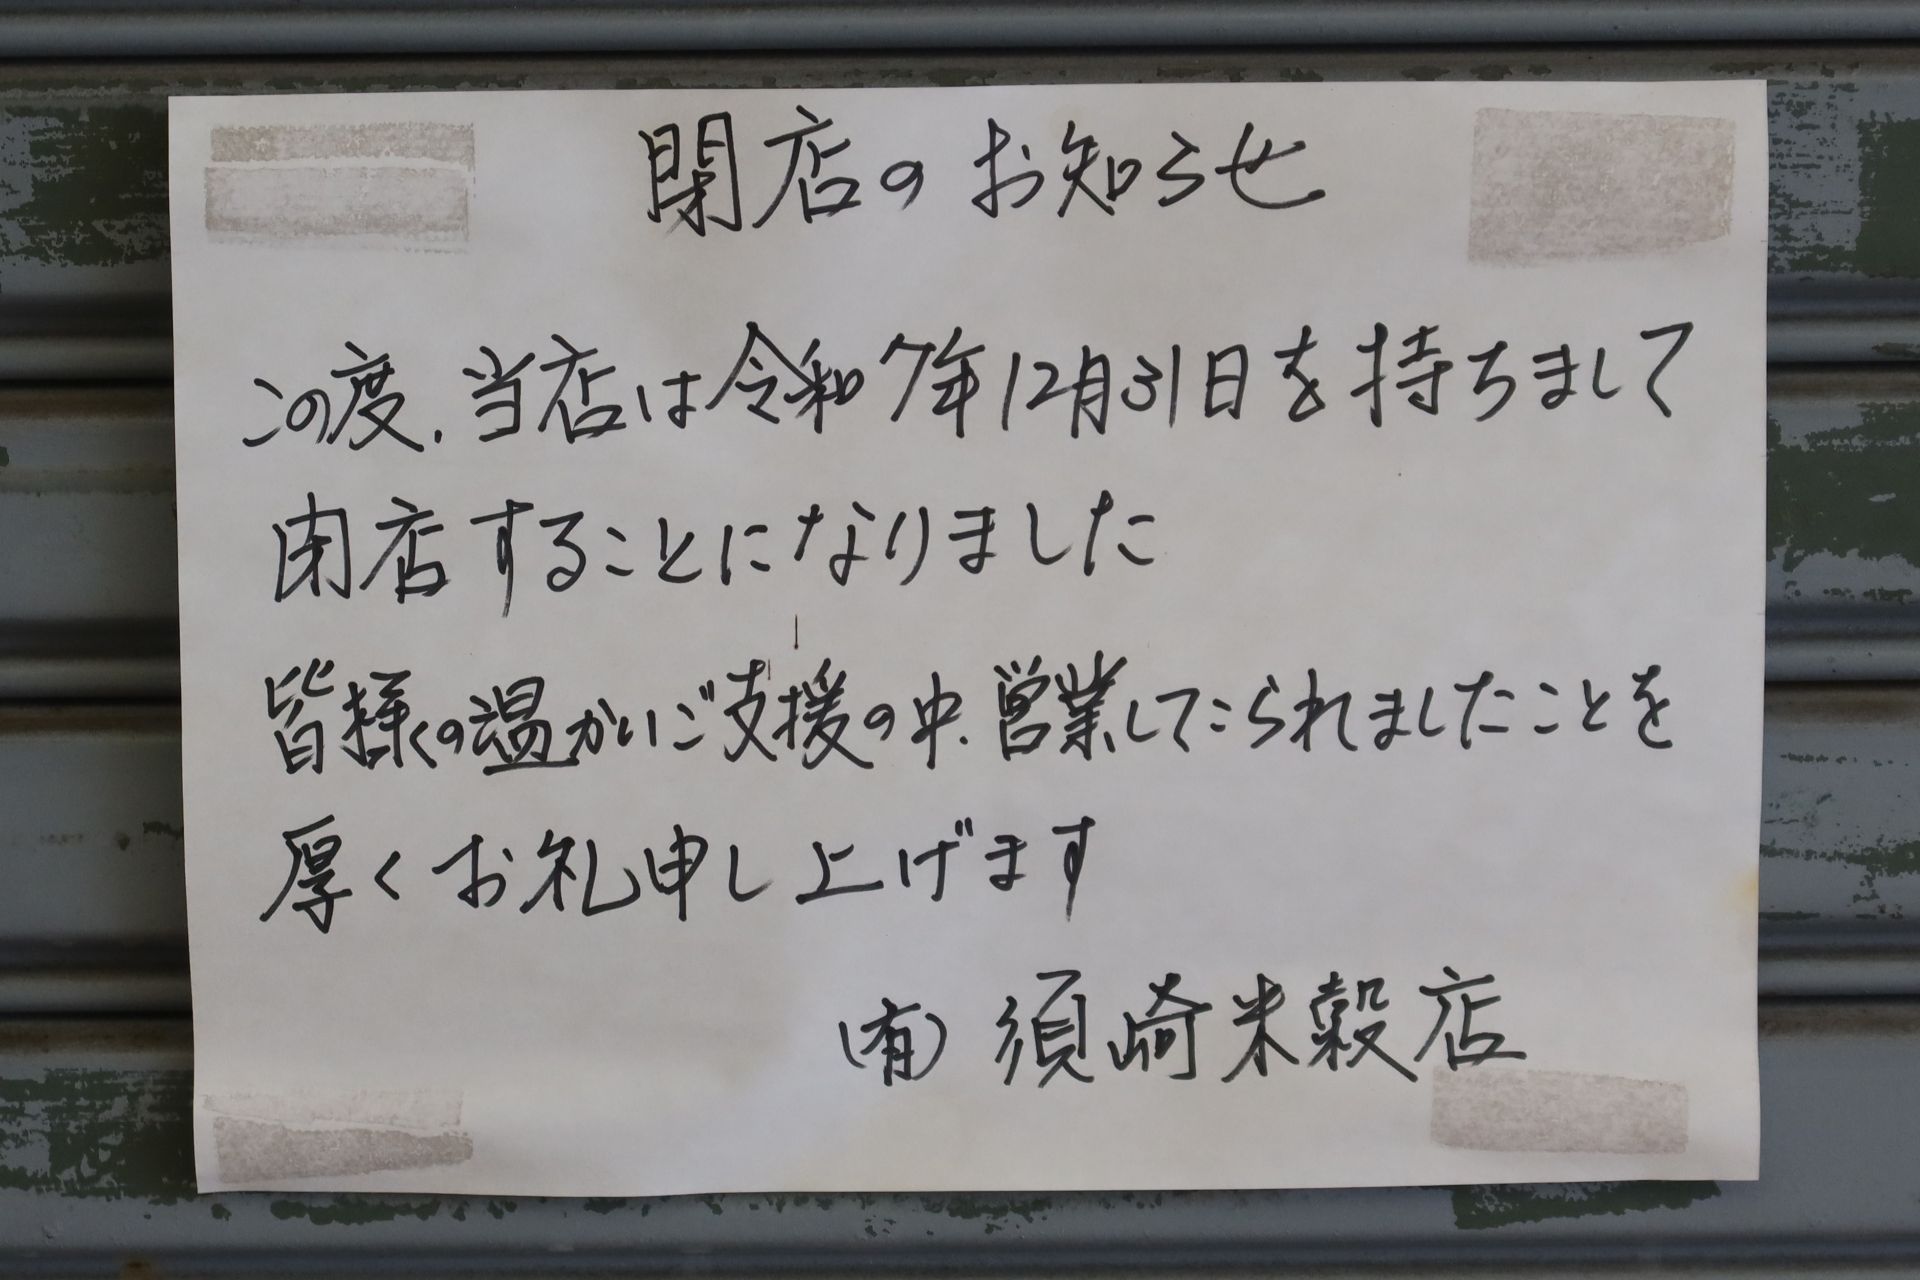 閉店のお知らせ
この度、当店は令和7年12月31日を持ちまして
閉店することになりました
皆様の温かいご支援の中、営業してこられましたことを
厚くお礼申し上げます
(有) 須崎米穀店